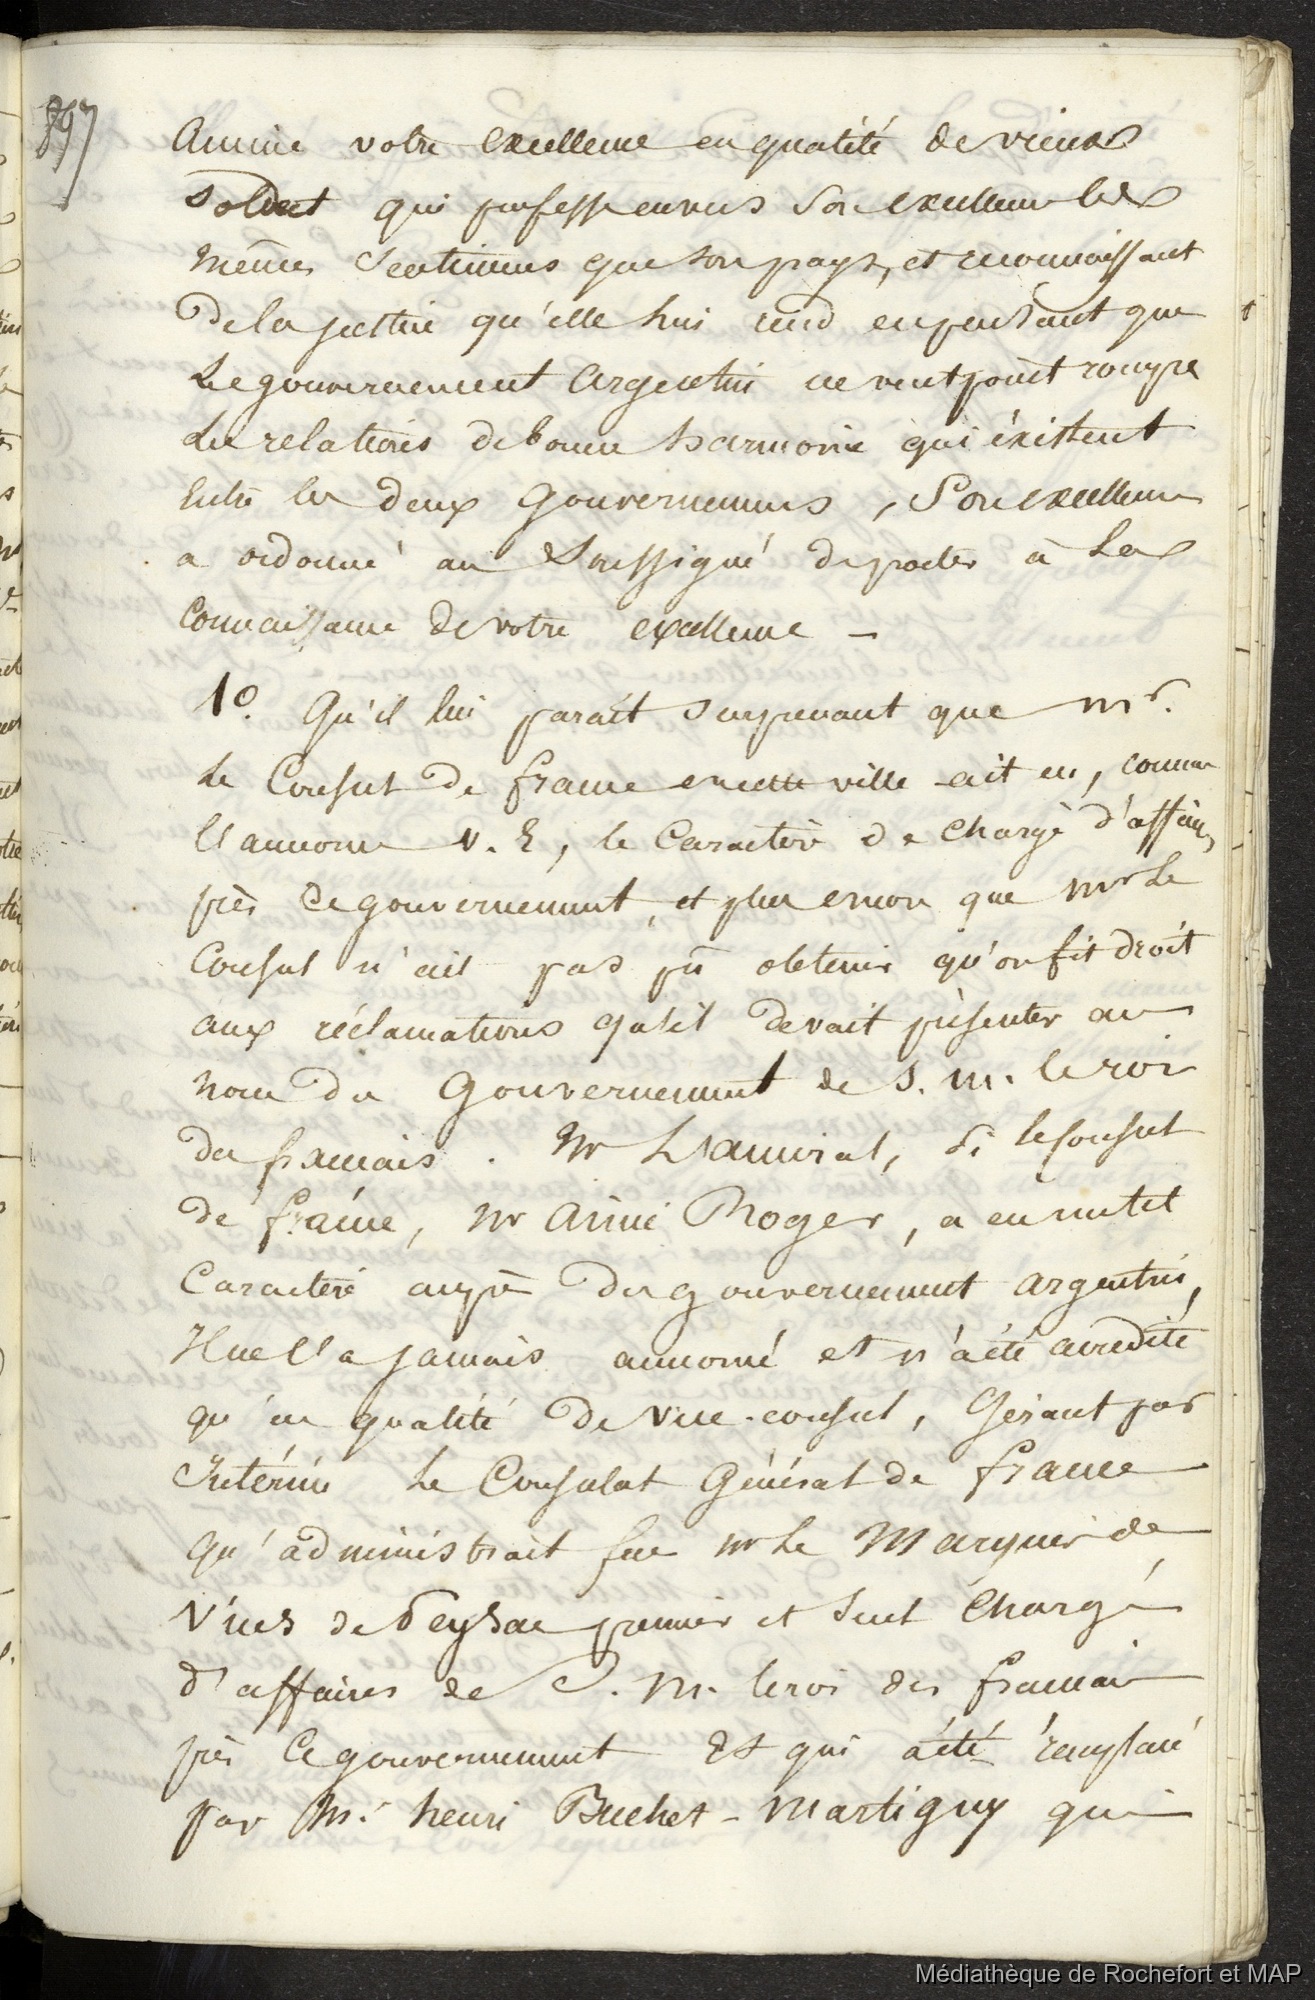 897
Anime votre excellence en qualité de vieux
soldat qui professe envers Son excellence les
mêmes sentimens que son pays, et reconnaissant
De la justice qu'elle lui rend en pensant que
Le gouvernement argentin ne veut point rompre
Les relations de bonne harmonie qui éxistent
Entre les deux Gouvernemens, Son excellence
a ordonné au Soussigné de porter à La
Connaissance de votre excellence —
1o. Qu'il lui paraît surprenant que mr.
Le Consul de france en cette ville ait eu, comme
l'annonce V. E, le Caractère de chargé d'affaires
près Ce gouvernement, et plus encore que mr Le
Consul n'ait pas pû obtenir qu'on fit droit
aux réclamations qu'il devait présenter au
nom Du Gouvernement de S. M. le roi
des français. Mr L'amiral, si le Consul
de france, Mr Aimé Roger, a eu un tel
Caractère auprès du gouvernement argentin,
Il ne l'a jamais annoncé et n'a été accrédité
qu'en qualité De Vice-consul, Gérant par
Intérim Le Consulat Général de france
qu'administrait feu mr Le Marquis de
Vins de Peysac premier et seul Chargé
d'affaires de S. M. le roi des français
près Ce gouvernement Et qui a été remplacé
par Mr. henri Buchet-Martigny qui
Médiathèque de Rochefort et MAP